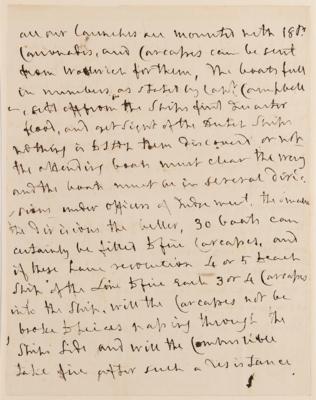 all our Launches are mounted with 18 pr
Carronades, and Carcasses can be sent
from Woolwich for them, The boats full
in numbers, as stated by Capt. Campbell
sett off from the Ships first quarter
flood, and get sight of the Dutch Ships
nothing is to Stop them discovered or not
the attending boats must clear the way
and the boats must be in several divi=
sions under officers of Judgement, the smaller
the divisions the better, 30 boats can
certainly be fitted to fire Carcasses, and
if these have resolution 4 or 5 to each
Ship of the Line to fire Each 3 or 4 Carcasses
into the Ship. will the Carcasses not be
broke to pieces passing through the
Ships Side and will the Combustible
take fire after such a resistance